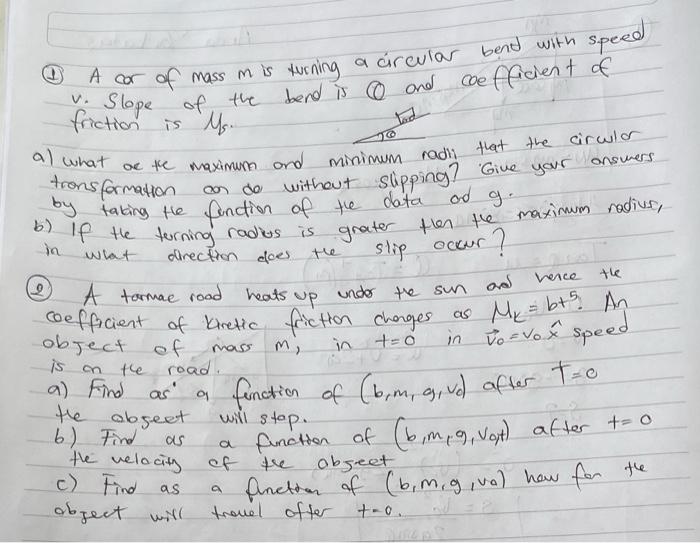 ① A car of mass m is turning a circular bend with speed
v. Slope of the bend is θ and coefficient of
friction is Ms.
a) what are the maximum and minimum radii that the circular
transformation can do without slipping? Give your answers
by taking the function of the data and g.
b) If the turning radius is grater then the maximum radius,
in what direction does the slip occur?
② A tarmac road heats up under the sun and hence the
coefficient of kinetic friction changes as Mk = bt⁵. An
object of mass m, in t=0 in v⃗0 = v0 x̂ speed
is on the road.
a) Find as a function of (b,m,g,v0) after T=0
the object will stop.
b) Find as a function of (b,m,g,v0,t) after t=0
the velocity of the object
c) Find as a function of (b,m,g,v0) how far the
object will travel after t=0.